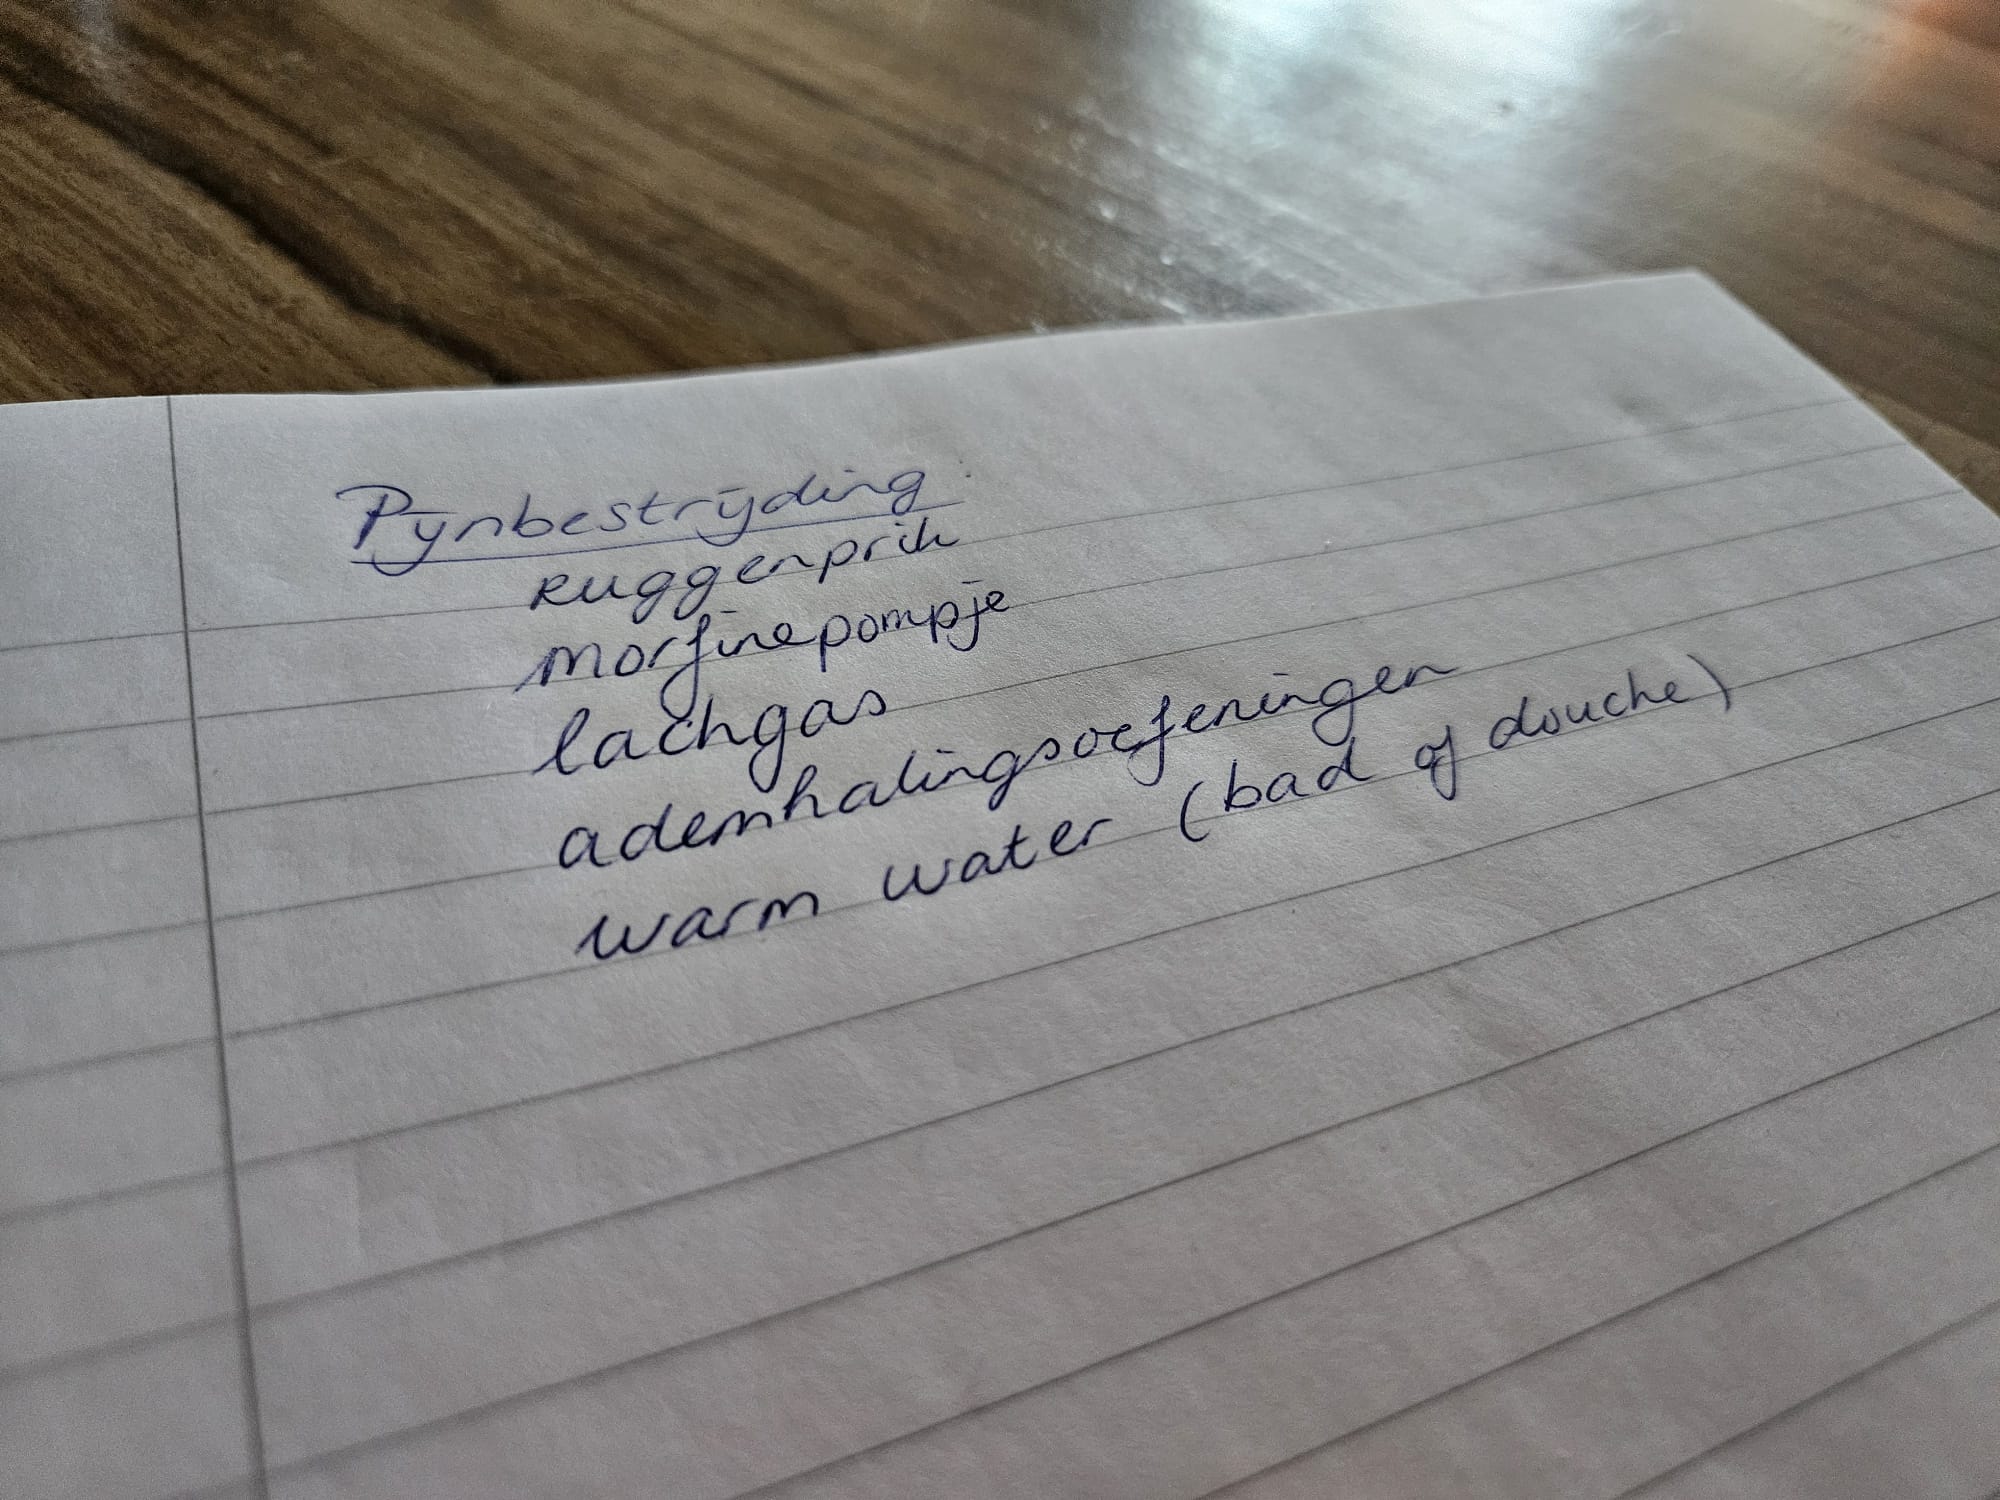 Pijnbestrijding
Ruggenprik
morfinepompje
lachgas
ademhalingsoefeningen
warm water (bad of douche)